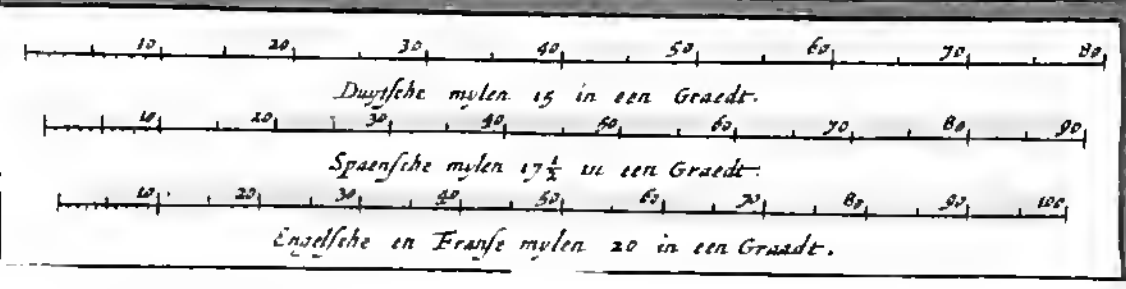 10 20 30 40 50 60 70 80
Duytsche mylen 15 in een Graedt.
10 20 30 40 50 60 70 80 90
Spaensche mylen 17 1/2 in een Graedt.
10 20 30 40 50 60 70 80 90 100
Engelsche en Franse mylen 20 in een Graadt.